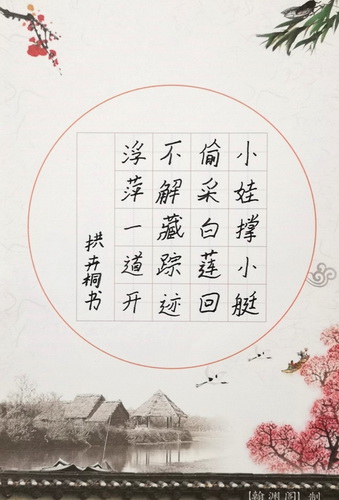 小娃撑小艇
偷采白莲回
不解藏踪迹
浮萍一道开
拱卉桐书
【翰渊阁】制